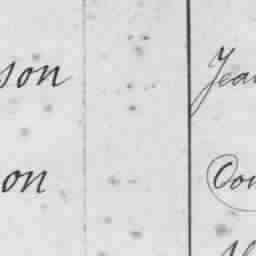 son Jea
on Con